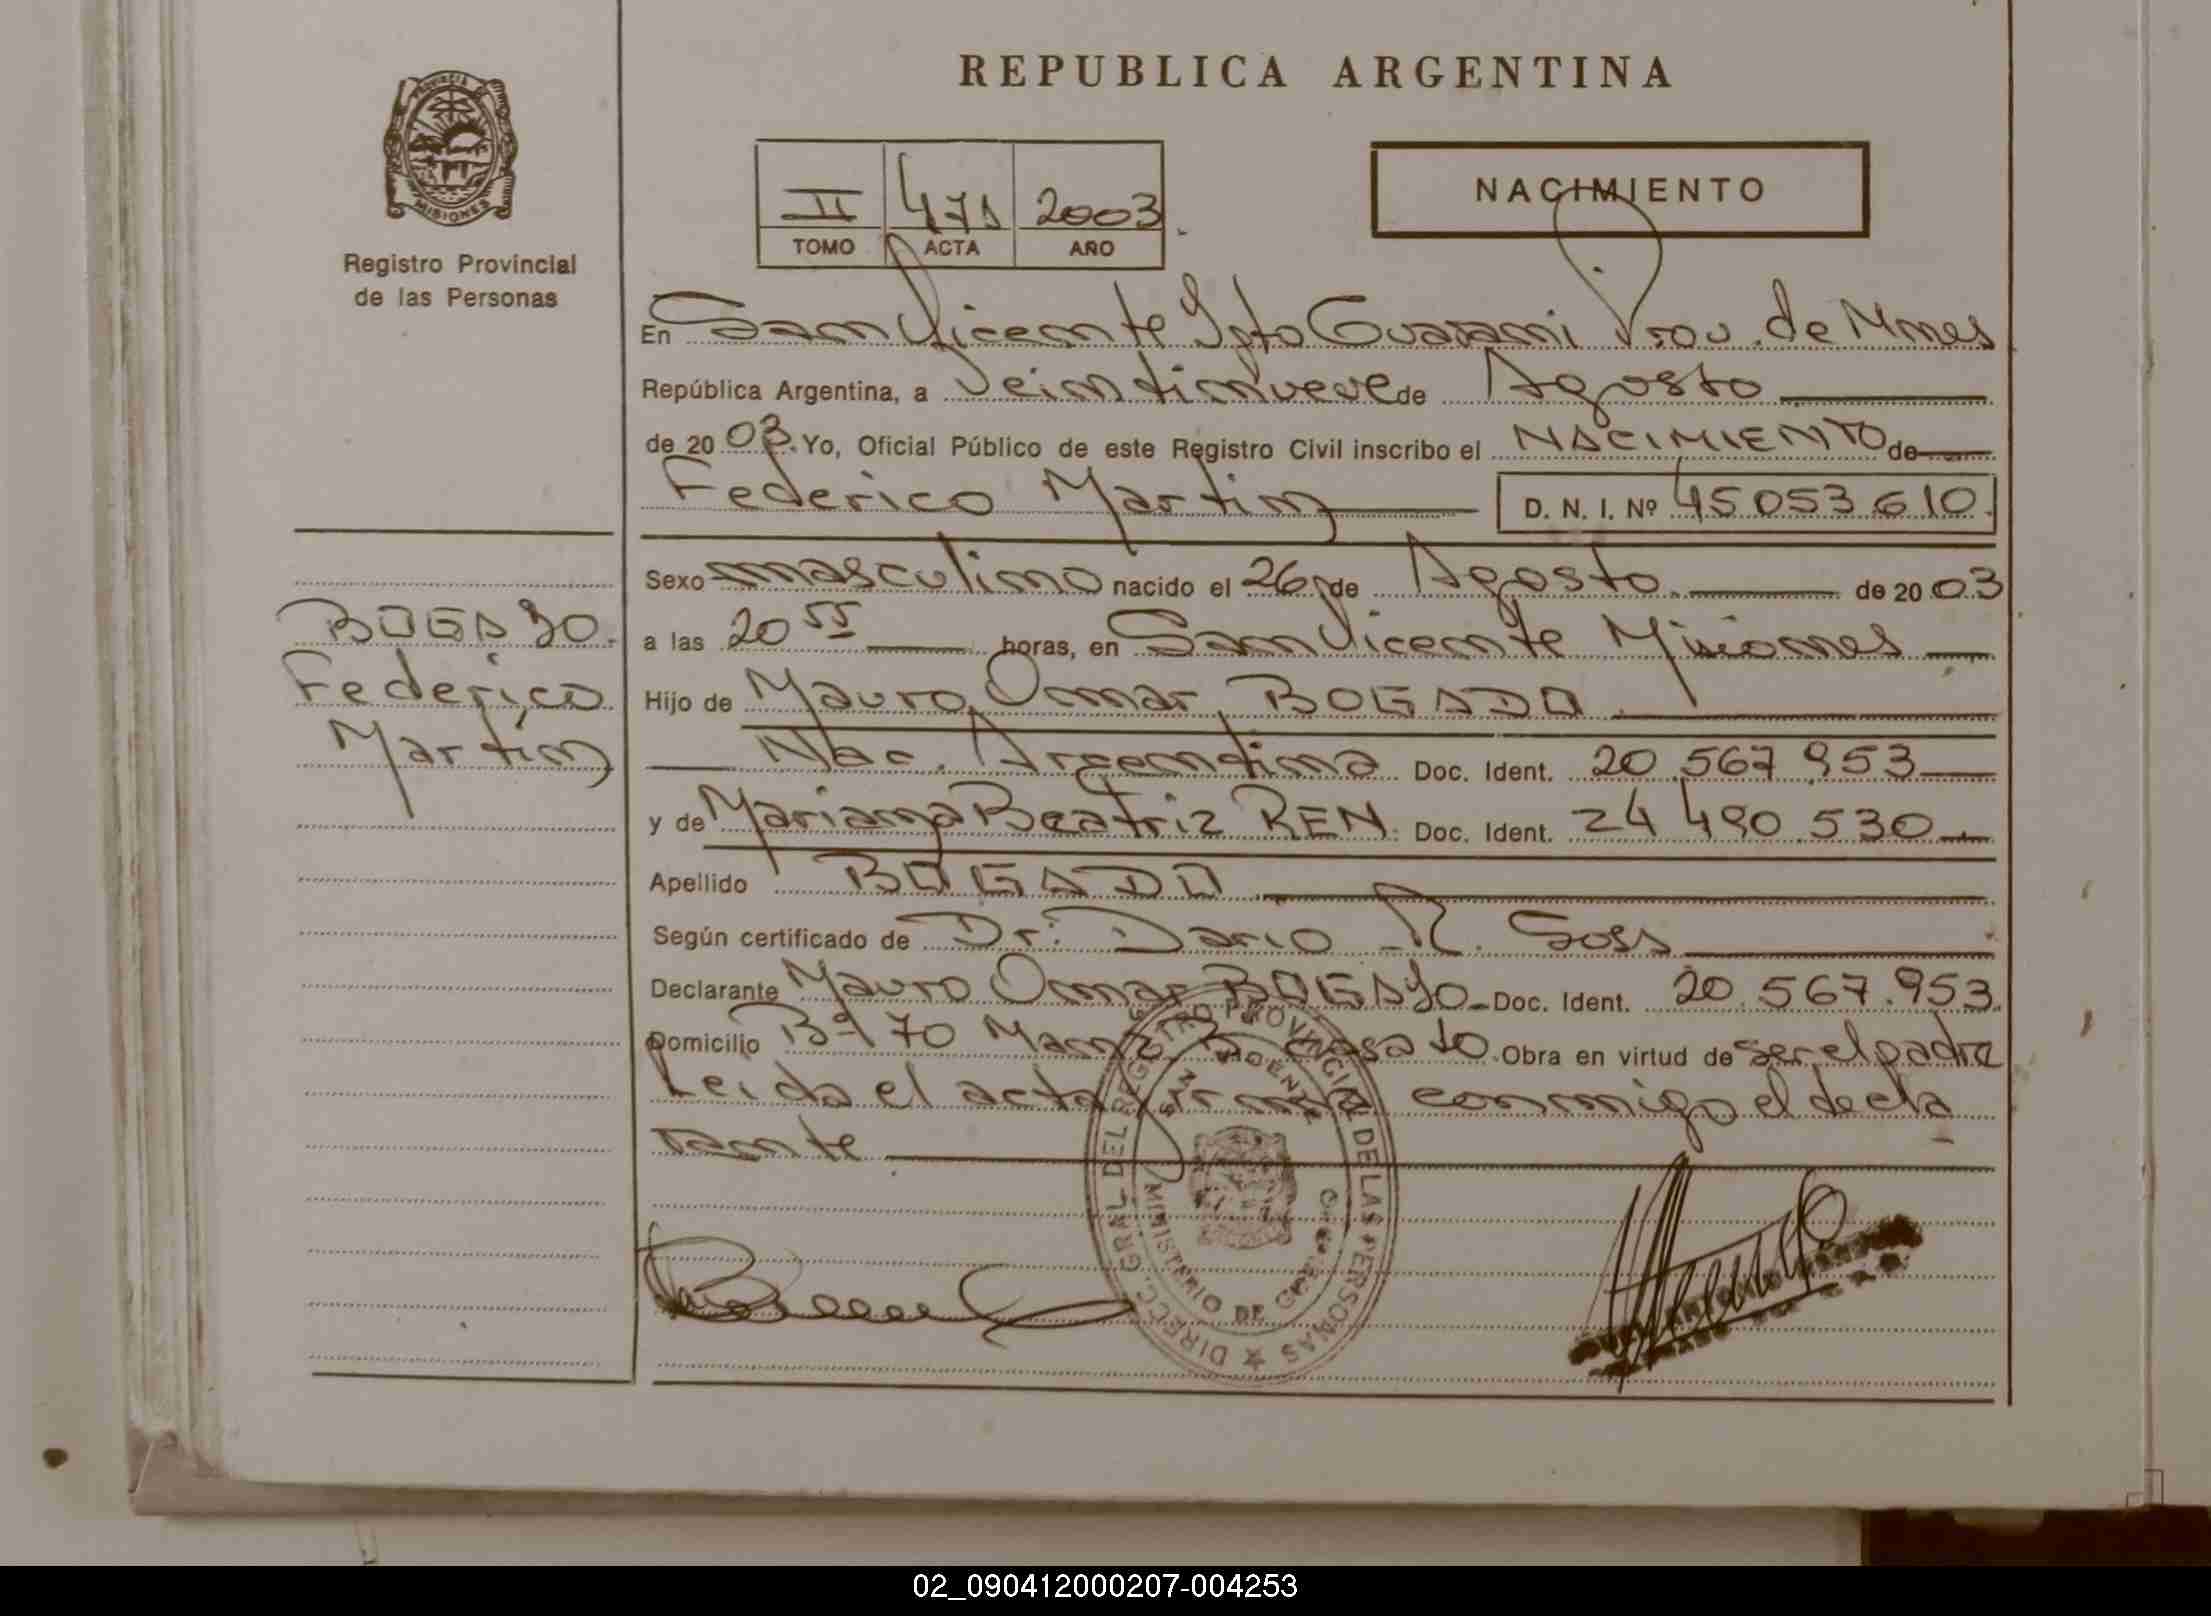 REPUBLICA ARGENTINA
PROVINCIA DE
MISIONES
Registro Provincial
de las Personas
II 471 2003
TOMO ACTA AÑO
NACIMIENTO
En San Vicente Dpto Guarani Prov. de Mnes
República Argentina, a Veintinueve de Agosto
de 2003. Yo, Oficial Público de este Registro Civil inscribo el NACIMIENTO de
Federico Martin D. N. I. Nº 45053610
Sexo masculino nacido el 26 de Agosto de 2003
a las 20 55 horas, en San Vicente Misiones
Hijo de Mauro Omar BOGADO
Nac. Argentina Doc. Ident. 20.567.953
y de Mariana Beatriz REN. Doc. Ident. 24.490.530
Apellido BOGADO
Según certificado de Dr. Dario R. Soss
Declarante Mauro Omar BOGADO Doc. Ident. 20.567.953.
Domicilio Bº 70 Manz Obra en virtud de ser el padre
Leida el acta firma conmigo el decla
rante
BOGADO.
Federico
Martin
DIRECC. GRAL. DEL REGISTRO PROVINCIAL DE LAS PERSONAS
SAN VICENTE
MINISTERIO DE GOBIERNO
02_090412000207-004253